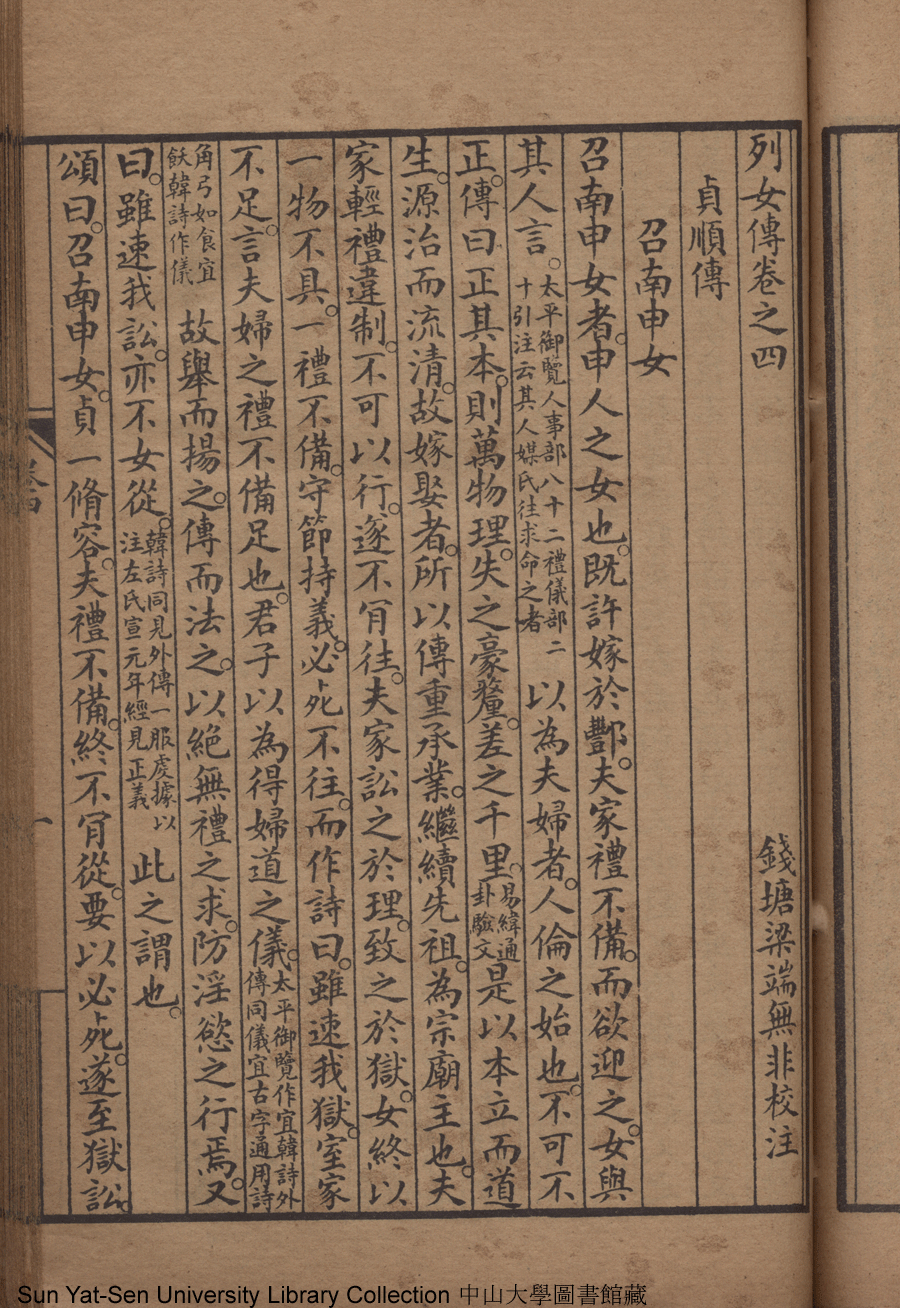 列女傳卷之四 錢塘梁端無非校注
貞順傳
召南申女
召南申女者。申人之女也。既許嫁於酆。夫家禮不備。而欲迎之。女與
其人言。太平御覽人事部八十二禮儀部二十引注云其人媒氏往求命之者以為夫婦者。人倫之始也。不可不
正。傳曰。正其本。則萬物理。失之豪釐。差之千里。易緯通卦驗文是以本立而道
生。源治而流清。故嫁娶者。所以傳重承業。繼續先祖。為宗廟主也。夫
家輕禮違制。不可以行。遂不肎往。夫家訟之於理。致之於獄。女終以
一物不具。一禮不備。守節持義。必死不往。而作詩曰。雖速我獄。室家
不足。言夫婦之禮不備足也。君子以為得婦道之儀。太平御覽作宜韓詩外傳同儀宜古字通用詩
角弓如食宜飫韓詩作儀故舉而揚之。傳而法之。以絕無禮之求。防淫慾之行焉。又
曰。雖速我訟。亦不女從。韓詩同見外傳一服虔據以注左氏宣元年經見正義此之謂也。
頌曰。召南申女。貞一脩容。夫禮不備。終不肎從。要以必死。遂至獄訟。
卷四
一
Sun Yat-Sen University Library Collection 中山大學圖書館藏